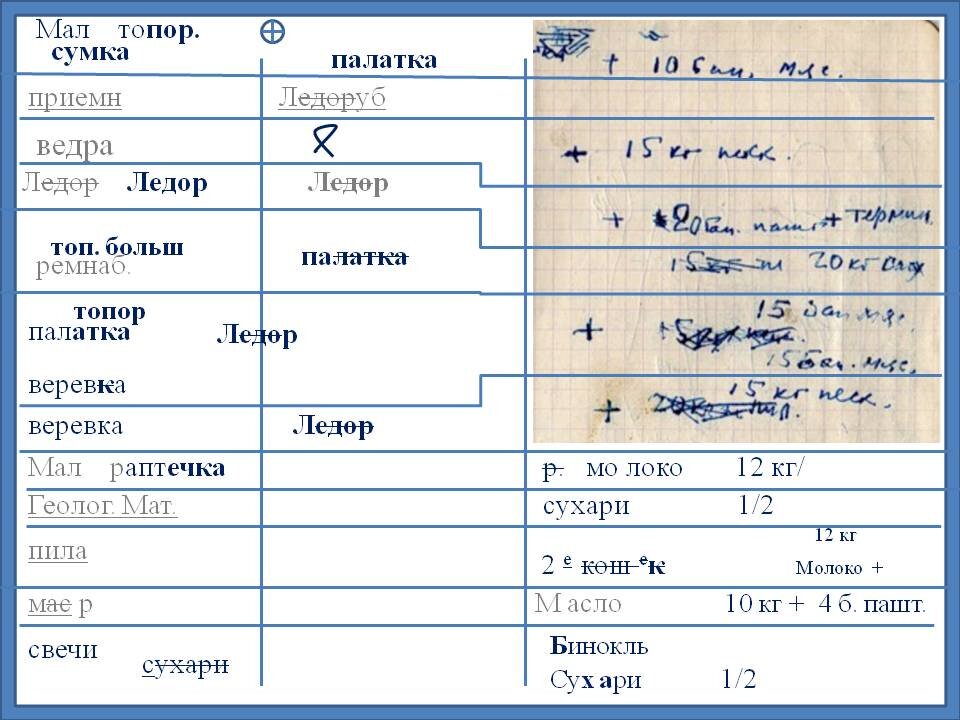 Мал топор.
сумка палатка + 10 бан. мяс.
приемн Ледоруб
ведра + 15 кг песк.
Ледор Ледор Ледор + 20 бан. пашт + термин.
топ. больш палатка 15 кг 20 кг
ремнаб.
топор 15 бан мяс.
палатка Ледор +
15 бан. мяс.
веревка 15 кг песк.
веревка Ледор +
Мал раптечка р. мо локо 12 кг/
Геолог. Мат. сухари 1/2
12 кг
пила 2 е кош ек Молоко +
мас р М асло 10 кг + 4 б. пашт.
свечи Бинокль
сухари Сух ари 1/2